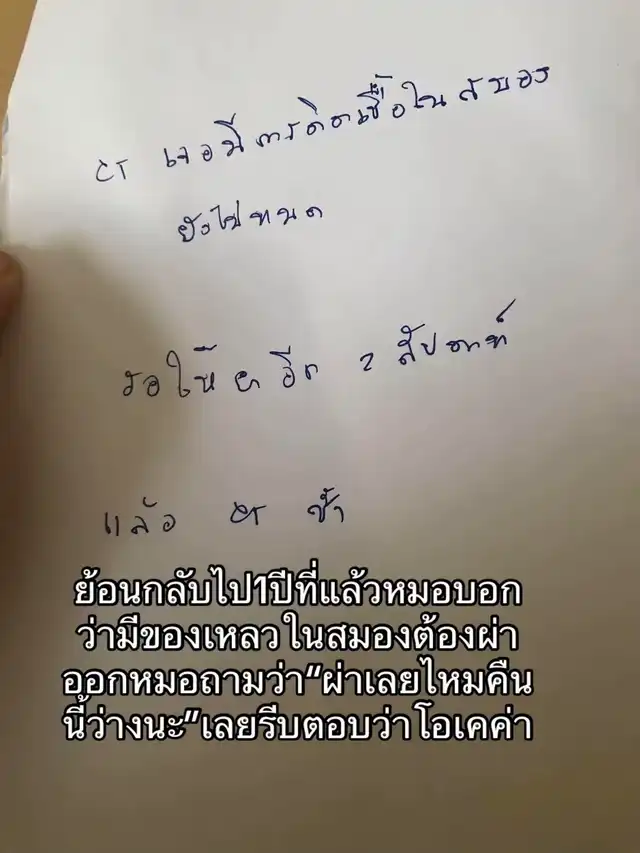 CT เจอมีการติดเชื้อในสมอง
ยังไม่หมด
รอให้ยาอีก 2 สัปดาห์
แล้ว CT ซ้ำ
ย้อนกลับไป1ปีที่แล้วหมอบอก
ว่ามีของเหลวในสมองต้องผ่า
ออกหมอถามว่า“ผ่าเลยไหมคืน
นี้ว่างนะ”เลยรีบตอบว่าโอเคค่า